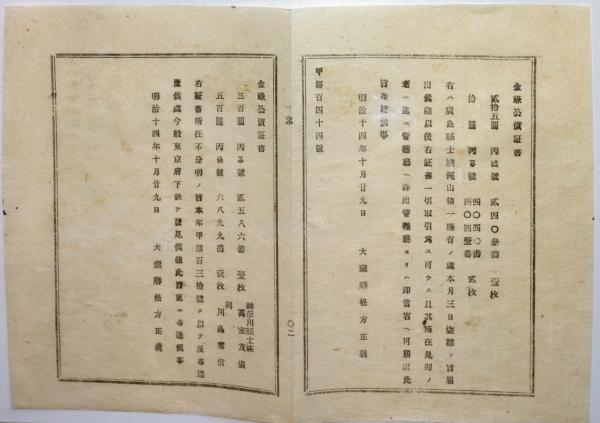 金祿公債証書
貳拾五圓 丙 號 貳四〇参番 壹枚
拾圓 丙る號 四〇四〇番
四〇四壹番 貳枚
右ハ廣島縣士族 山 一所有ノ處本月三日盗難ノ旨届
出候條以後右証書一切取引爲ス可ラス且其所在見聞ノ
者ハ速ニ管轄廳ヘ訴出管轄廳ヨリハ即當省ヘ可届出此
旨布達候事
明治十四年十月廿九日 大藏卿松方正義
甲第百四十四號
金祿公債証書
三百圓 丙る號 貳五八六番 壹枚 神奈川縣士族 高 茂廣
五百圓 丙 號 六八九九番 壹枚 同 川島常信
右証書所在不分明ノ旨本年甲第百三拾號ヲ以テ及布達
置候處今般東京府下於テ發見候條此旨更ニ布達候事
明治十四年十月廿九日 大藏卿松方正義